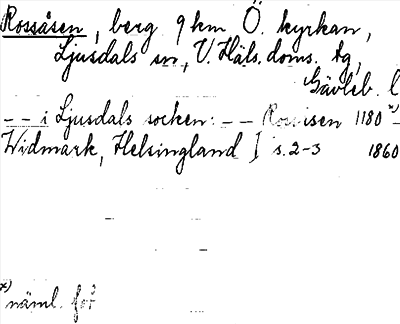 Rossåsen, berg 9 km Ö. kyrkan,
Ljusdals sn, V. Häls. doms. tg,
Gävleb. l
-- i Ljusdals socken: -- Rossåsen 1180 x) -
Widmark, Helsingland I s. 2-3 1860
x) näml. fot